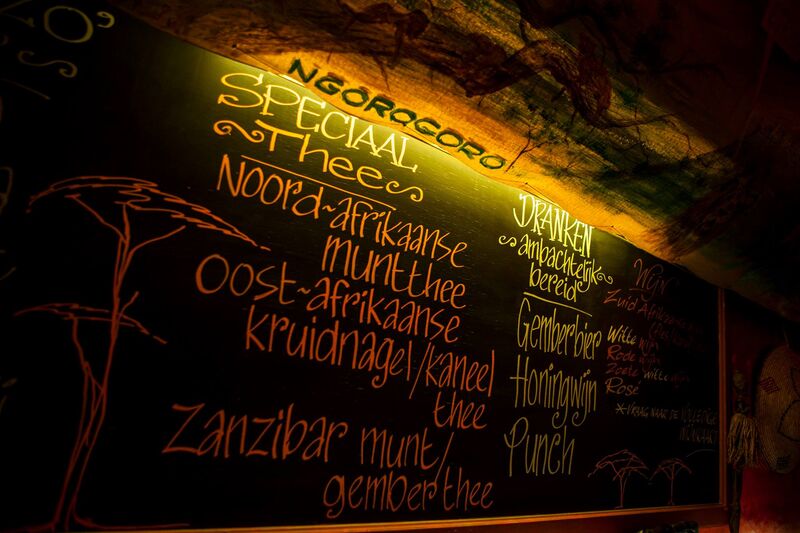 NGOROGORO
SPECIAAL
~Thee~
Noord~afrikaanse
muntthee
Oost~afrikaanse
kruidnagel/kaneel
thee
Zanzibar munt/
gemberthee
DRANKEN
~ambachtelijk~
bereid
Gemberbier
Honingwijn
Punch
Wijn
Zuid Afrikaanse
Witte wijn
Rode wijn
Zoete witte wijn
Rosé
*VRAAG NAAR DE VOLLEDIGE
WIJNKAART